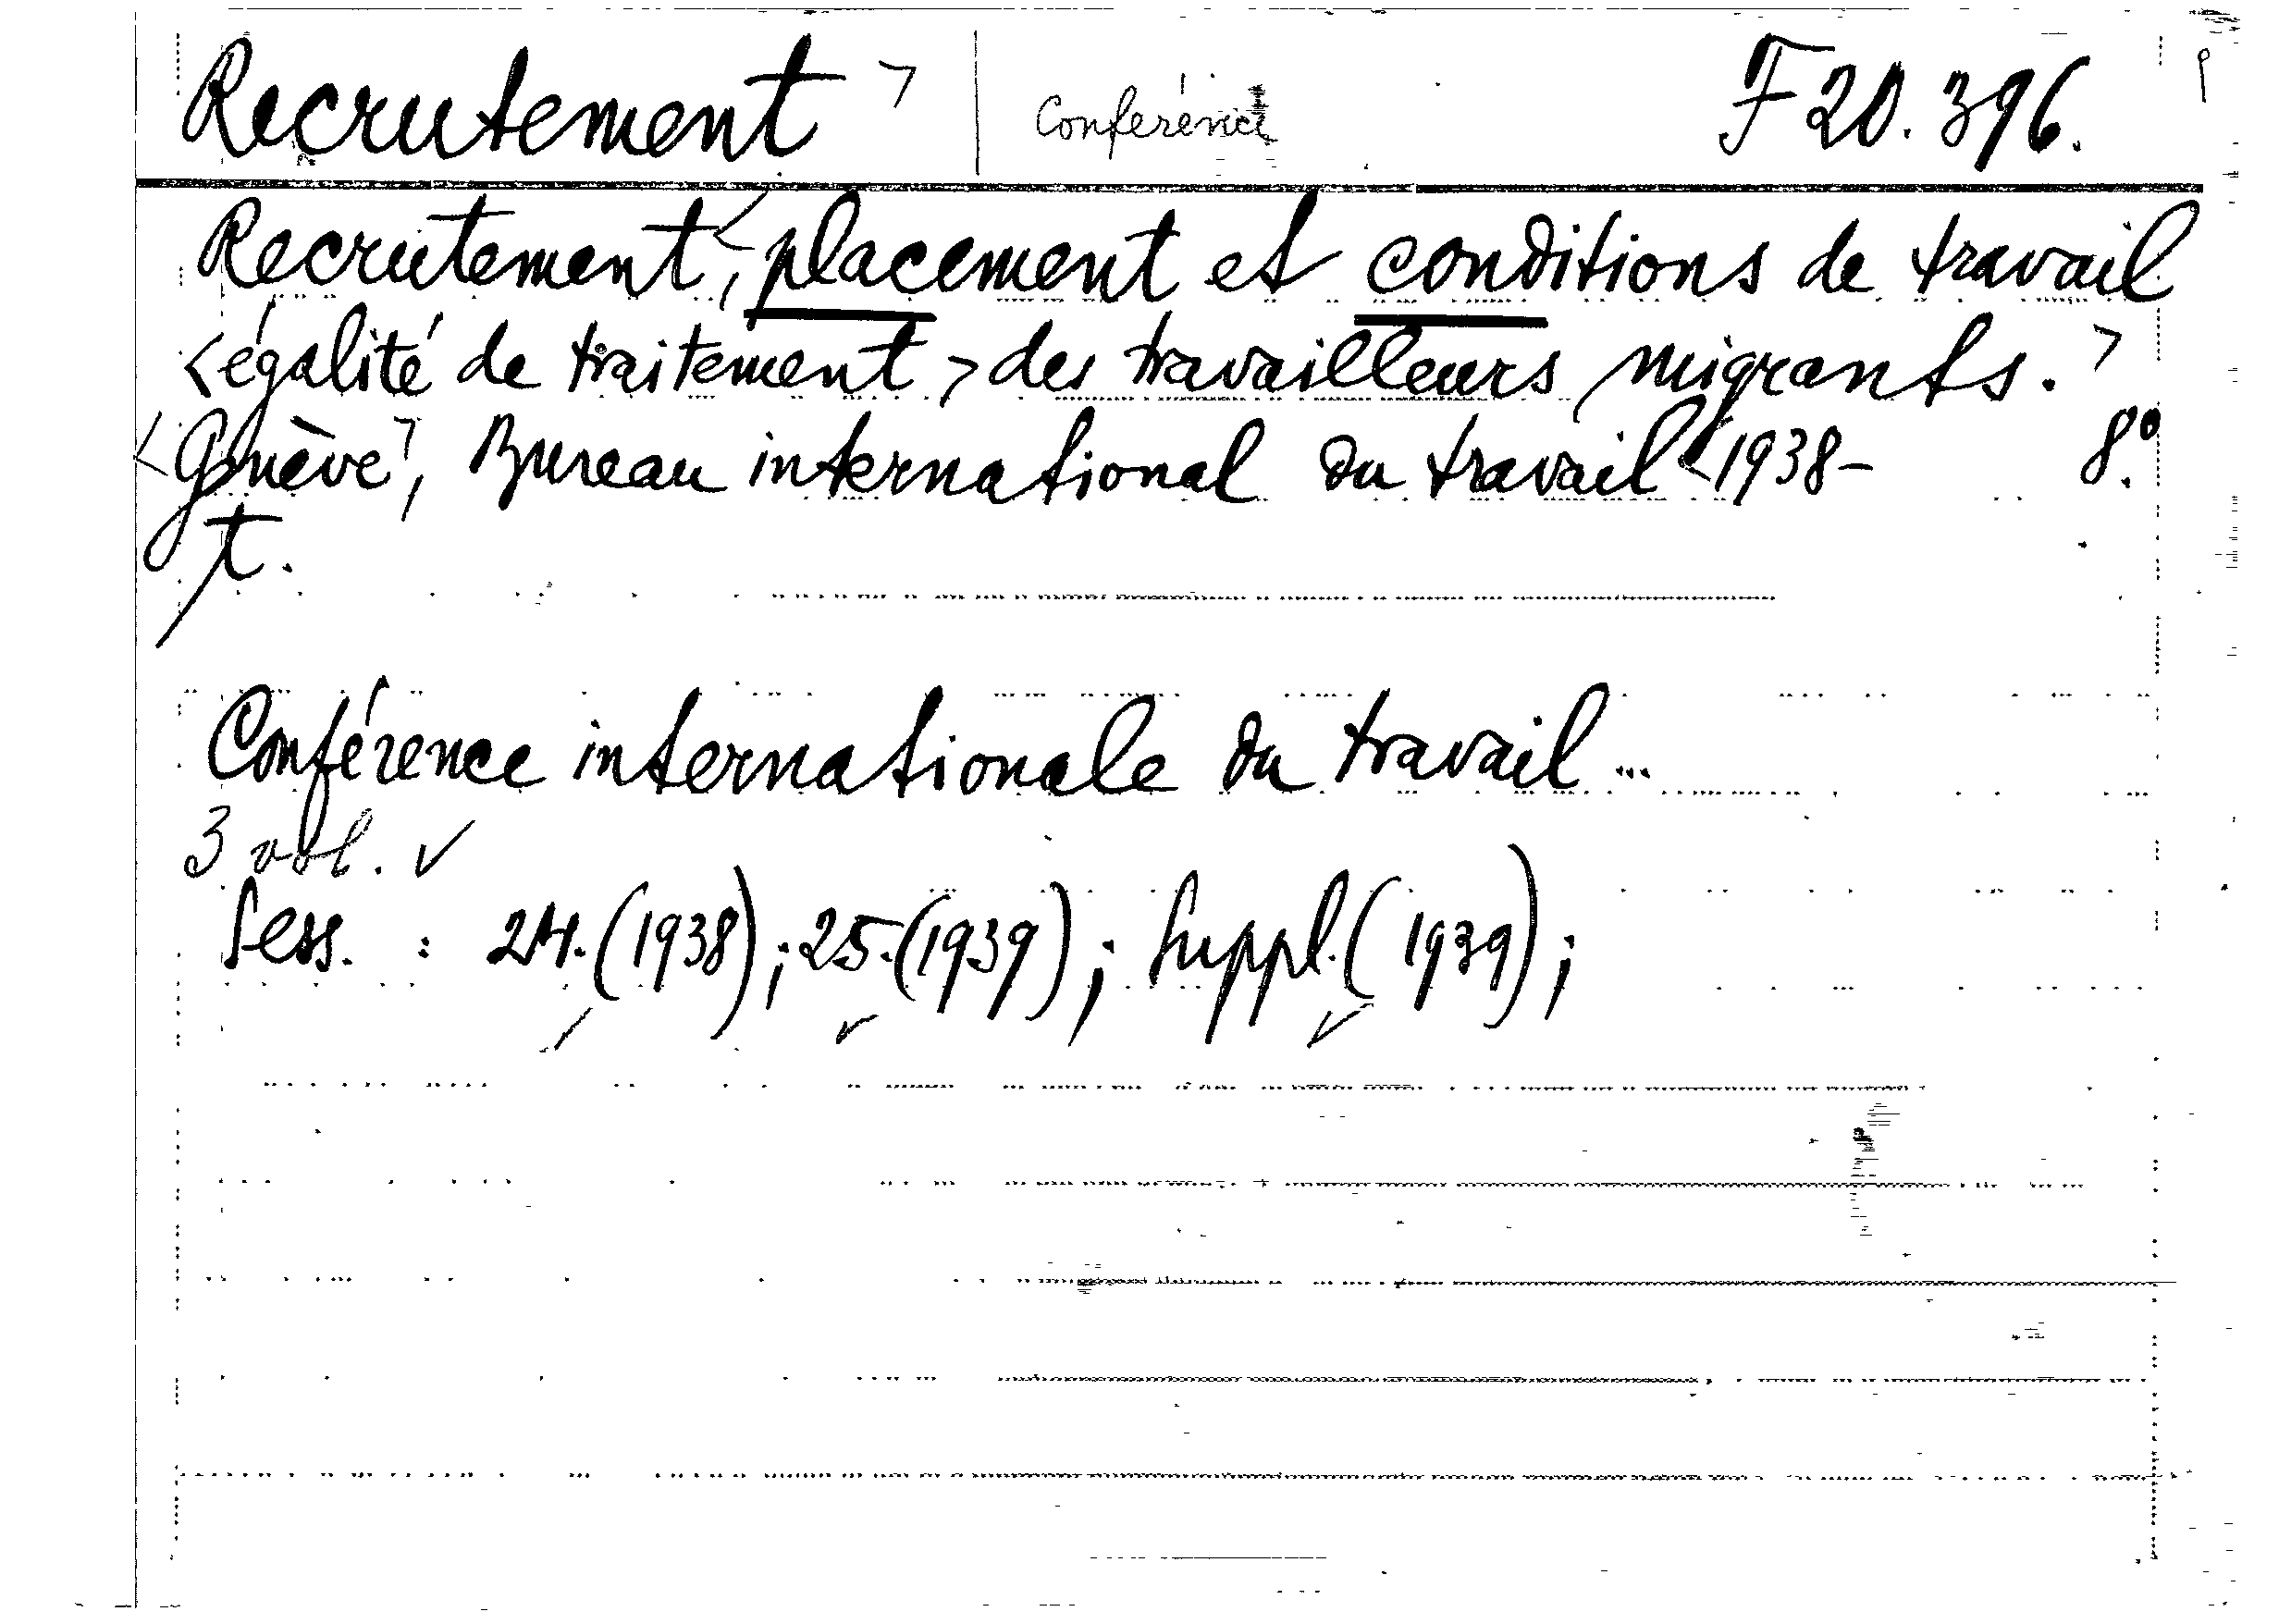 Recrutement > | Conférence F 20.396.
Recrutement, < placement et conditions de travail
< égalité de traitement > des travailleurs migrants. >
< Genève >, Bureau international du travail < 1938- 8.°
t.
Conférence internationale du travail ...
3 vol. ✓
Sess. : 24.(1938); 25.(1939); Suppl.(1939);